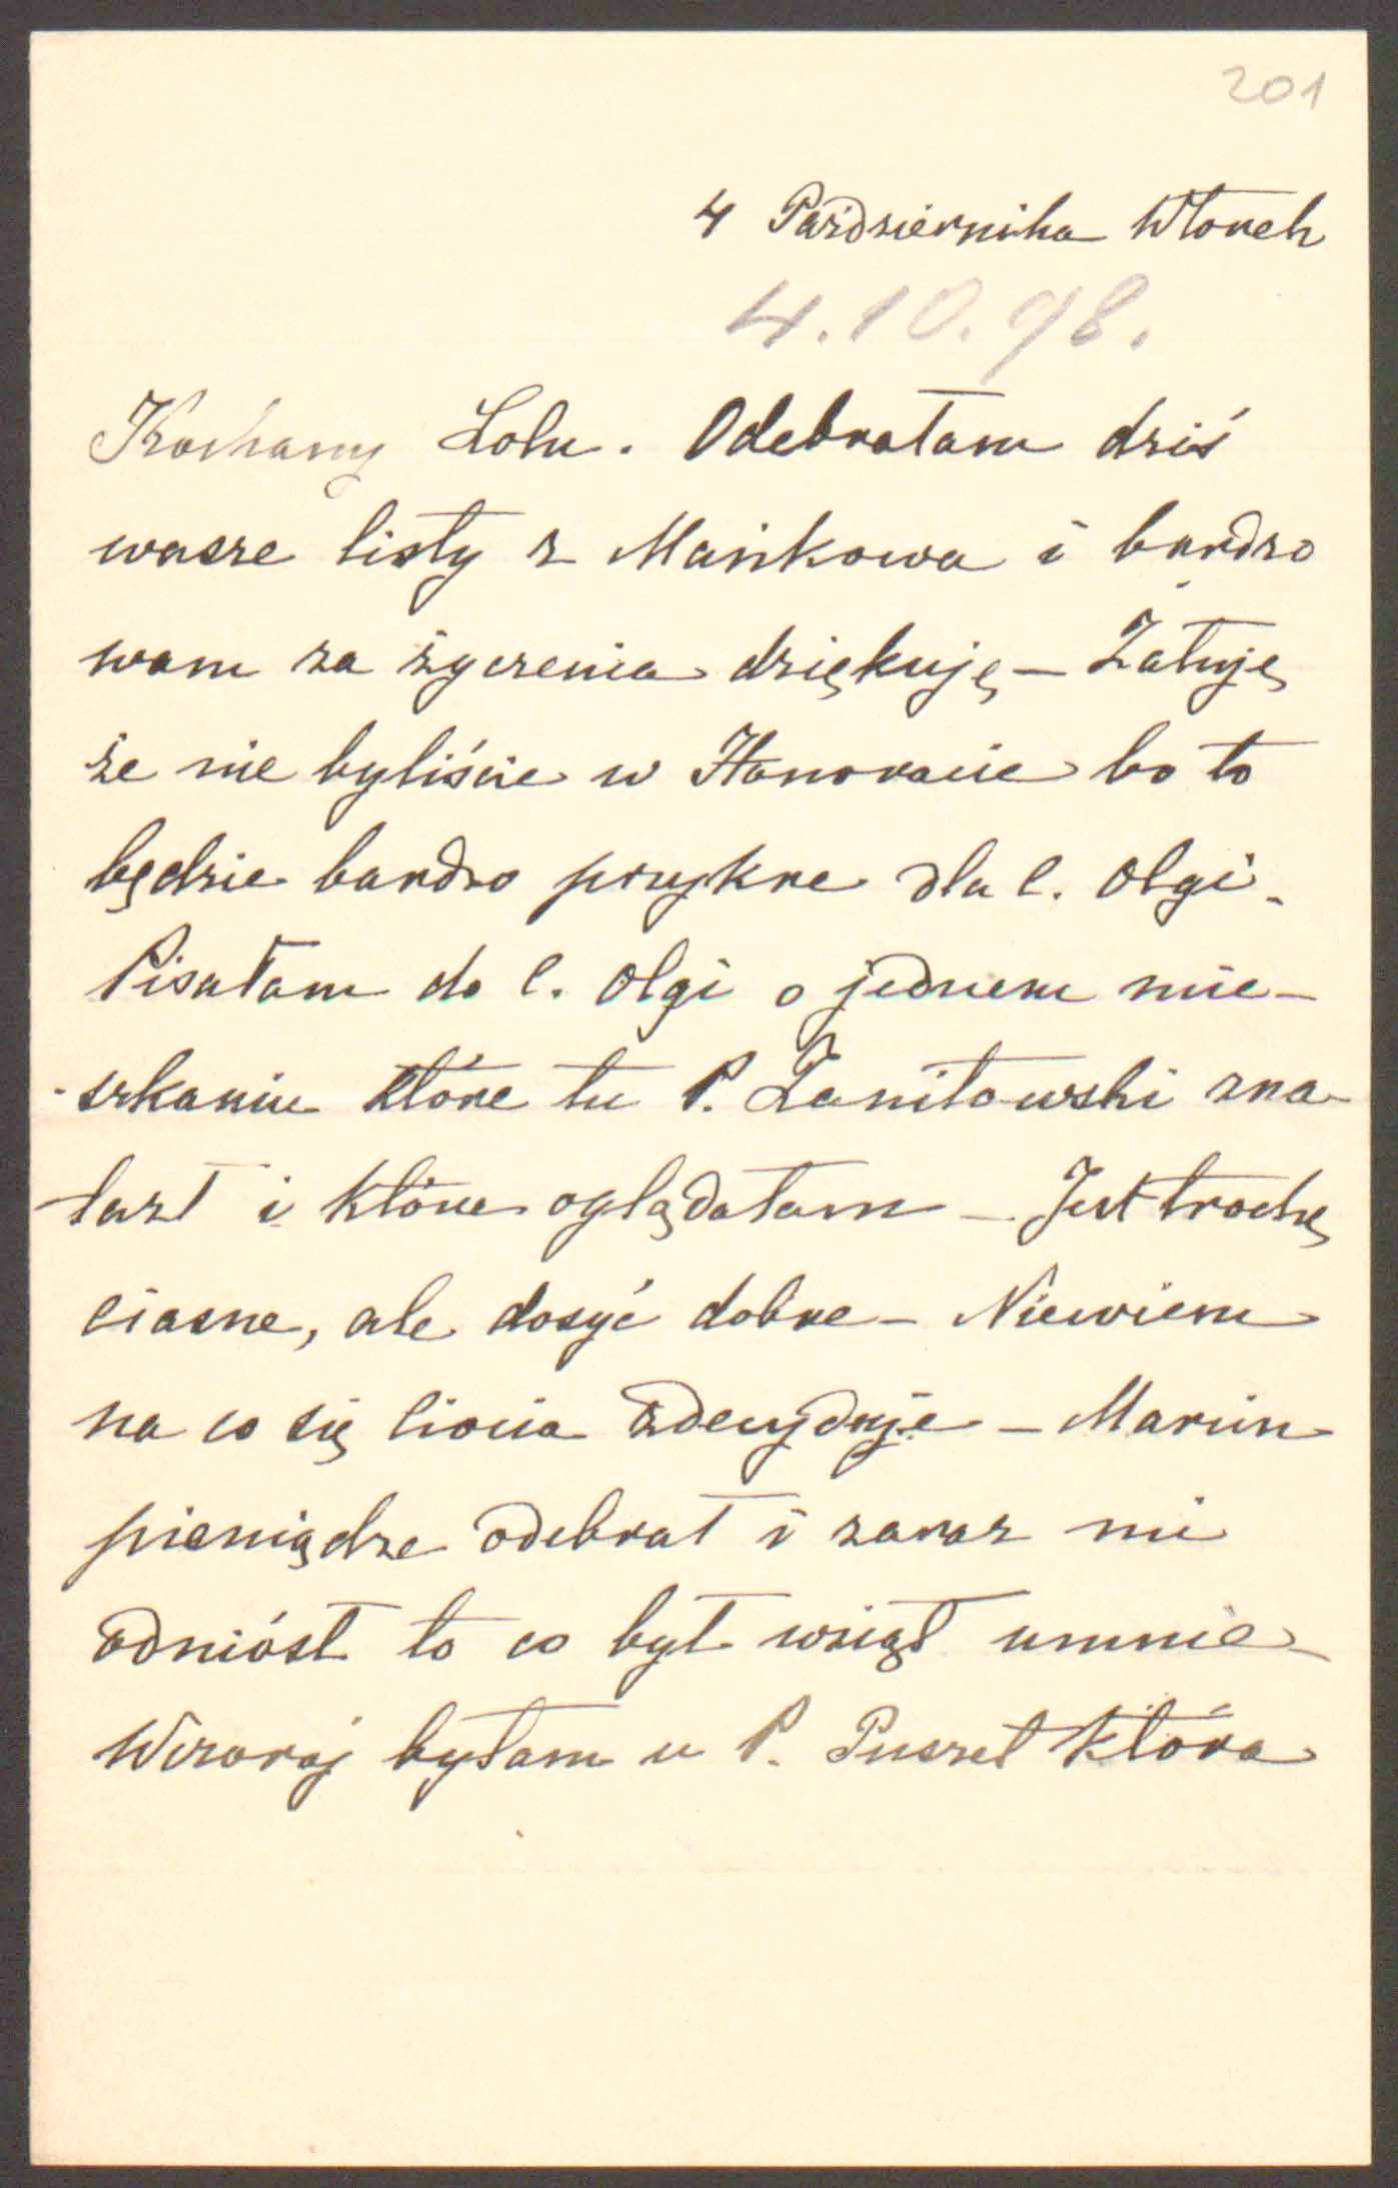 201
4 Października Wtorek
4.10.98.
Kochany Lolu. Odebrałam dziś
wasze listy z Mańkowa i bardzo
wam za życzenia dziękuję – Żałuję
że nie byliście w Honoracie bo to
będzie bardzo przykre dla C. Olgi.
Pisałam do C. Olgi o jednem mie-
szkaniu które tu P. Zaniłowski zna-
lazł i które oglądałam – Jest trochę
ciasne, ale dosyć dobre – Niewiem
na co się Ciocia zdecyduje – Marcin
pieniądze odebrał i zaraz mi
odniósł to co był wziął umnie –
Wczoraj byłam u P. Puszet która